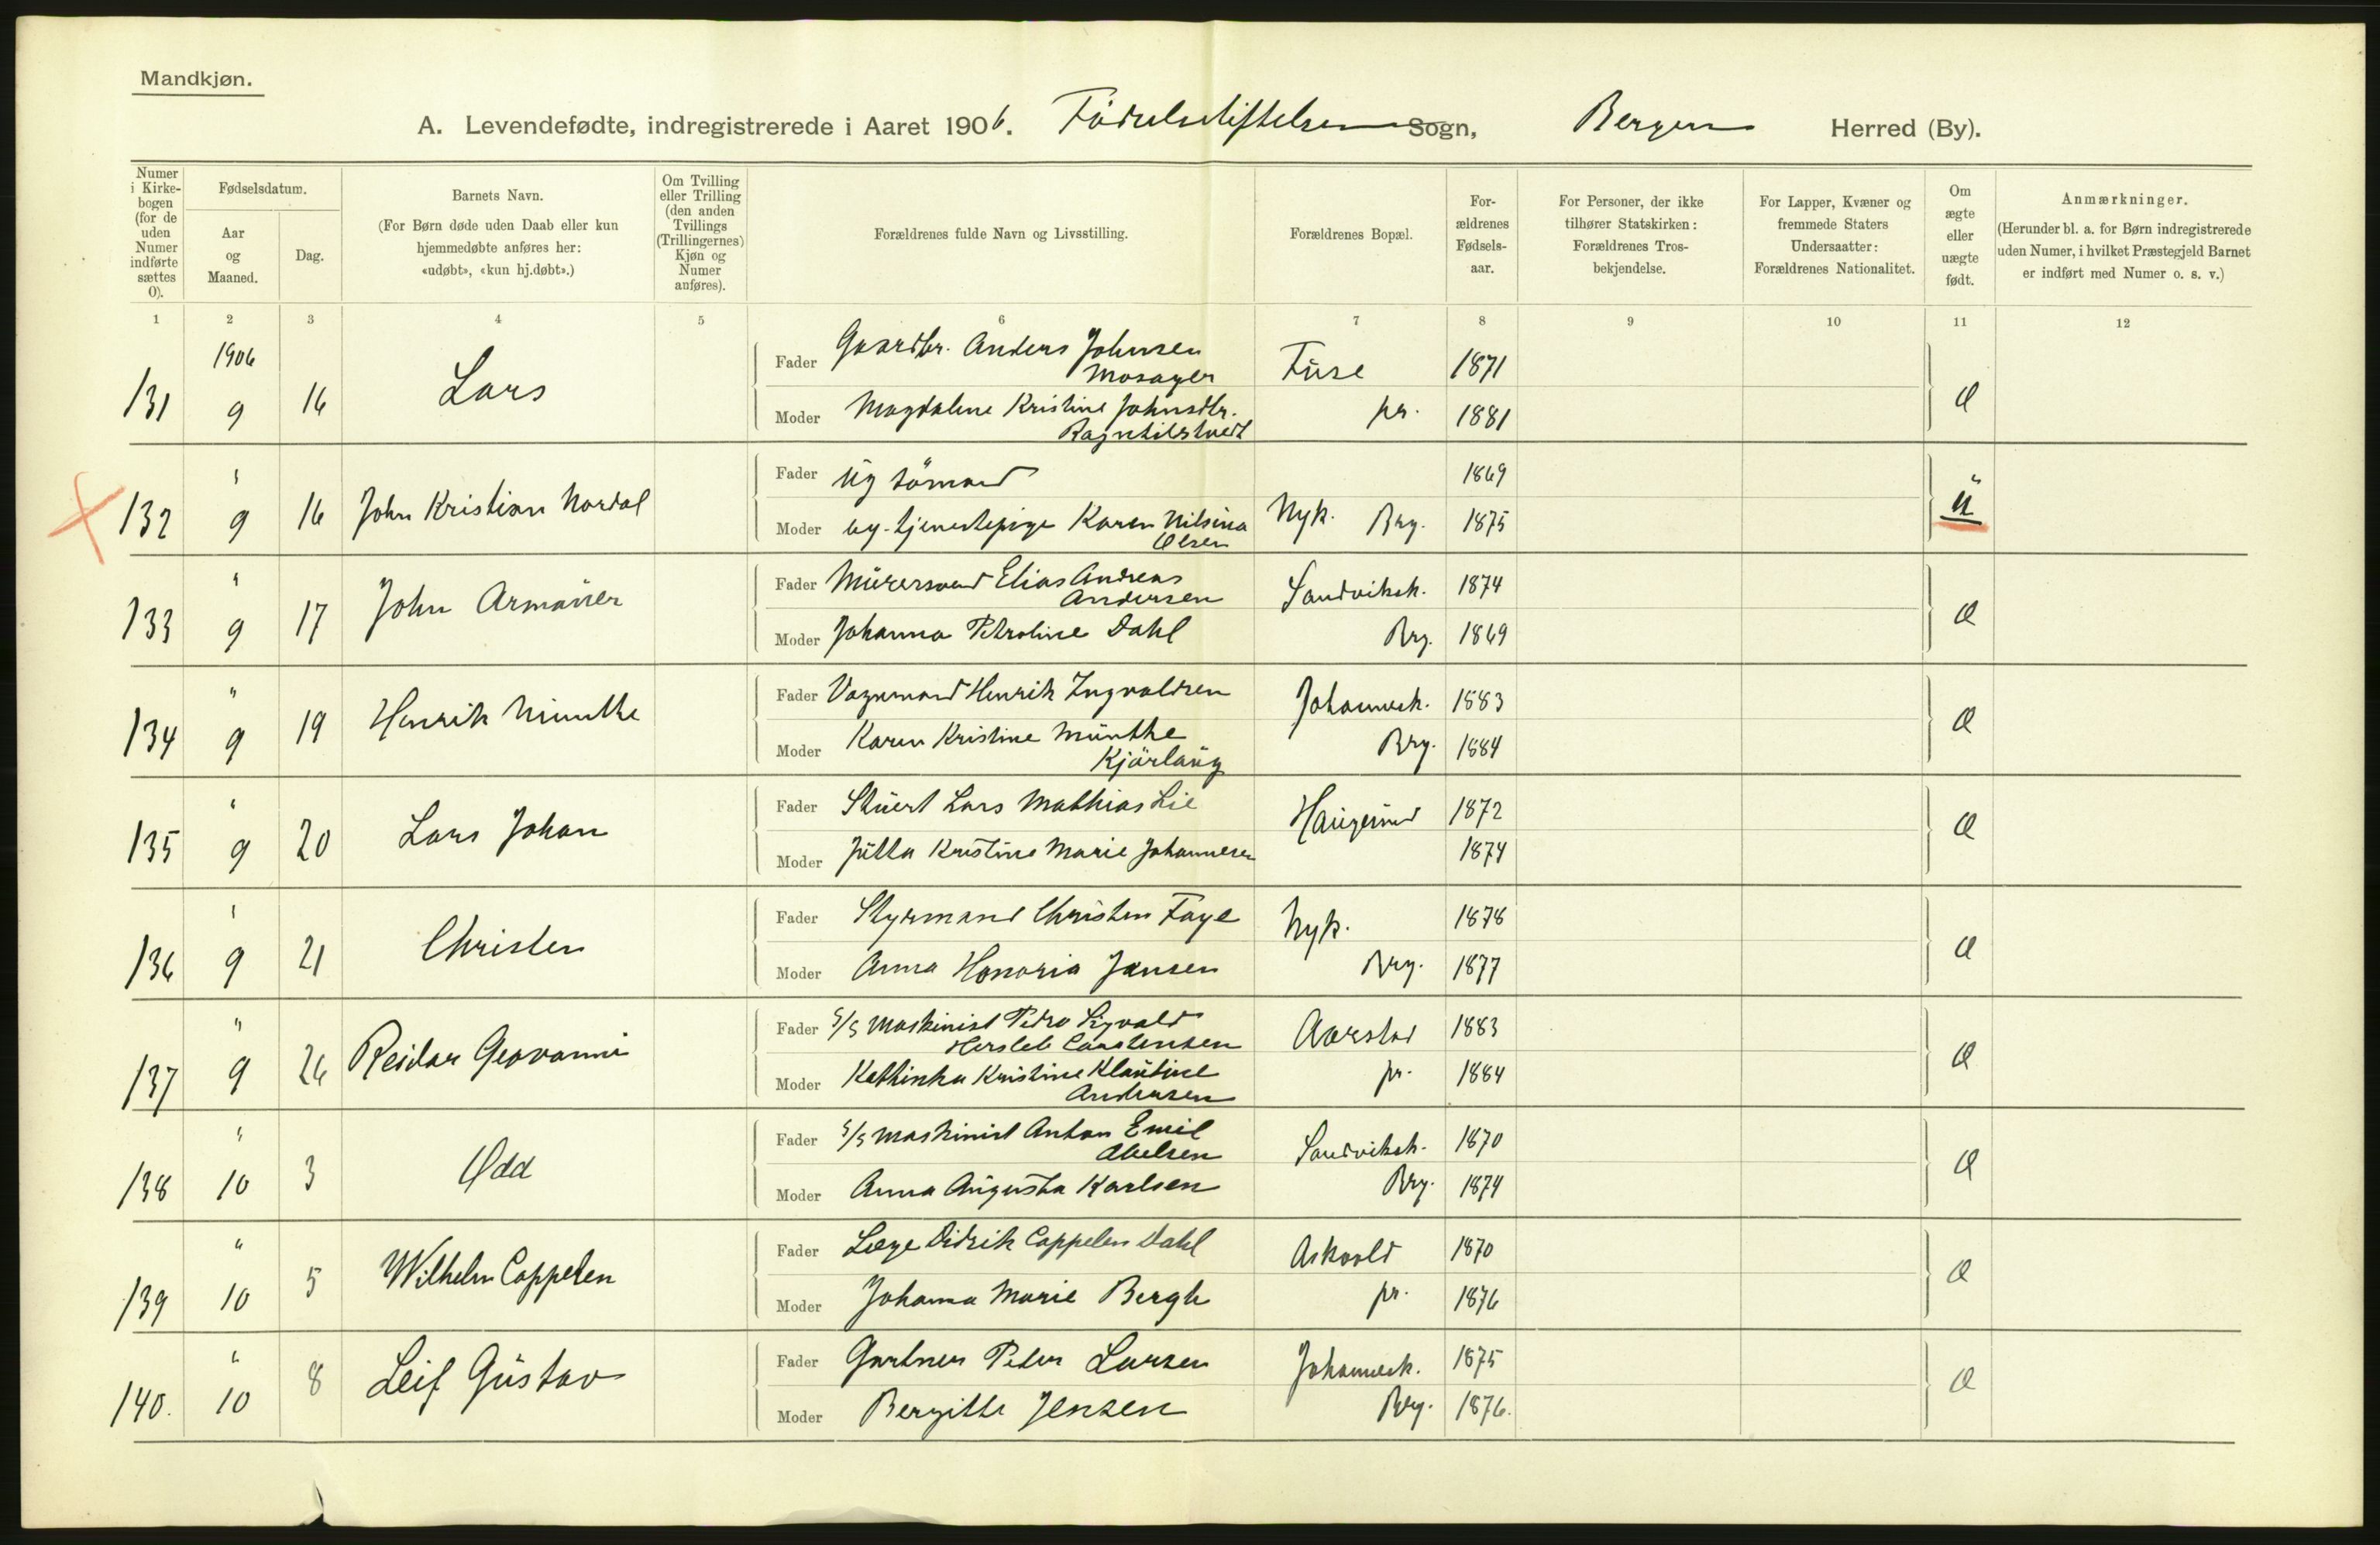 Mandkjøn.
A. Levendefødte, indregistrerede i Aaret 1906. Födselsstiftelsen Sogn, Bergen Herred (By).
Numer i Kirkebogen (for de uden Numer indførte sættes 0).
Fødselsdatum.
Aar og Maaned.
Dag.
Barnets Navn.
(For Børn døde uden Daab eller kun hjemmedøbte anføres her: «udøbt», «kun hj.døbt».)
Om Tvilling eller Trilling (den anden Tvillings (Trillingernes) Kjøn og Numer anføres).
Forældrenes fulde Navn og Livsstilling.
Forældrenes Bopæl.
Forældrenes Fødselsaar.
For Personer, der ikke tilhører Statskirken: Forældrenes Trosbekjendelse.
For Lapper, Kvæner og fremmede Staters Undersaatter: Forældrenes Nationalitet.
Om ægte eller uægte født.
Anmærkninger.
(Herunder bl. a. for Børn indregistrerede uden Numer, i hvilket Præstegjeld Barnet er indført med Numer o. s. v.)
1 2 3 4 5 6 7 8 9 10 11 12
131 1906 9 16 Lars
Fader Gaardbr. Anders Johnsen Mosager Fuse 1871
Moder Magdalene Kristine Johnsdtr. Ragnhildstvedt pr. 1881 Æ
132 " 9 16 John Kristian Nordal
Fader ug sömand 1869
Moder ug. tjenestepige Karen Nilsina Olsen Nyk. Brg. 1875 U
133 " 9 17 John Armauer
Fader Murersvend Elias Andreas Andersen Sandviksk. 1874
Moder Johanna Petroline Dahl Brg. 1869 Æ
134 " 9 19 Henrik Munthe
Fader Vognmand Henrik Ingvaldsen Johannesk. 1883
Moder Karen Kristine Munthe Kjörlaug Brg. 1884 Æ
135 " 9 20 Lars Johan
Fader Stuert Lars Mathias Lie Haugesund 1872
Moder Jutta Kristine Marie Johannesen 1874 Æ
136 " 9 21 Christen
Fader Styrmand Christen Faye Nyk. 1878
Moder Anna Honoria Jansen Brg. 1877 Æ
137 " 9 26 Reidar Geovanni
Fader S/S Maskinist Pedro Sigvald Hersleb Carstensen Aarstad 1883
Moder Kathinka Kristine Klautine Andersen pr. 1884 Æ
138 " 10 3 Odd
Fader S/S Maskinist Anton Emil Abelsen Sandviksk. 1870
Moder Anna Augusta Karlsen Brg. 1874 Æ
139 " 10 5 Wilhelm Cappelen
Fader Læge Didrik Cappelen Dahl Askvold 1870
Moder Johanna Marie Bergh pr. 1876 Æ
140. " 10 8 Leif Gustav
Fader Gartner Peter Larsen Johannesk. 1875
Moder Bergitte Jensen Brg. 1876. Æ